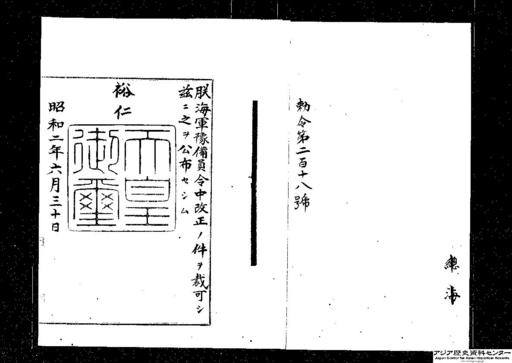 總海
勅令第二百十八號
朕海軍豫備員令中改正ノ件ヲ裁可シ
茲ニ之ヲ公布セシム
裕仁
天皇
御璽
昭和二年六月三十日
アジア歴史資料センター
Japan Center for Asian Historical Records